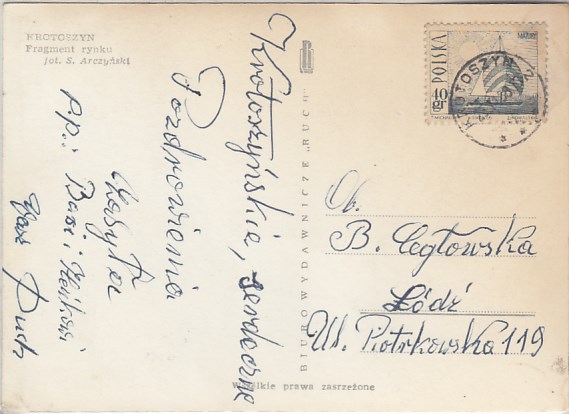 KROTOSZYN
Fragment rynku
fot. S. Arczyński
Krotoszyńskie, serdeczne
Pozdrowienia
Pp.: Basi i Heńkowi
BIURO WYDAWNICZE „RUCH"
POLSKA
40 gr
MAZURY
KROTOSZYN 2
Ob.
B. Cegłowska
Łódź
Ul. Piotrkowska 119
Wszelkie prawa zastrzeżone